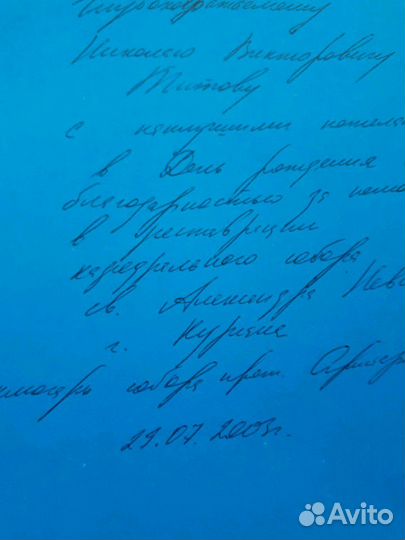 Глубокоуважаемому
Николаю Викторовичу
Титову
с наилучшими пожела
в День рождения
благодарностью за помо
в реставрации
кафедрального собора
св. Александра Невс
г. Кургана
собора прот.
29.07.2003г.
Avito